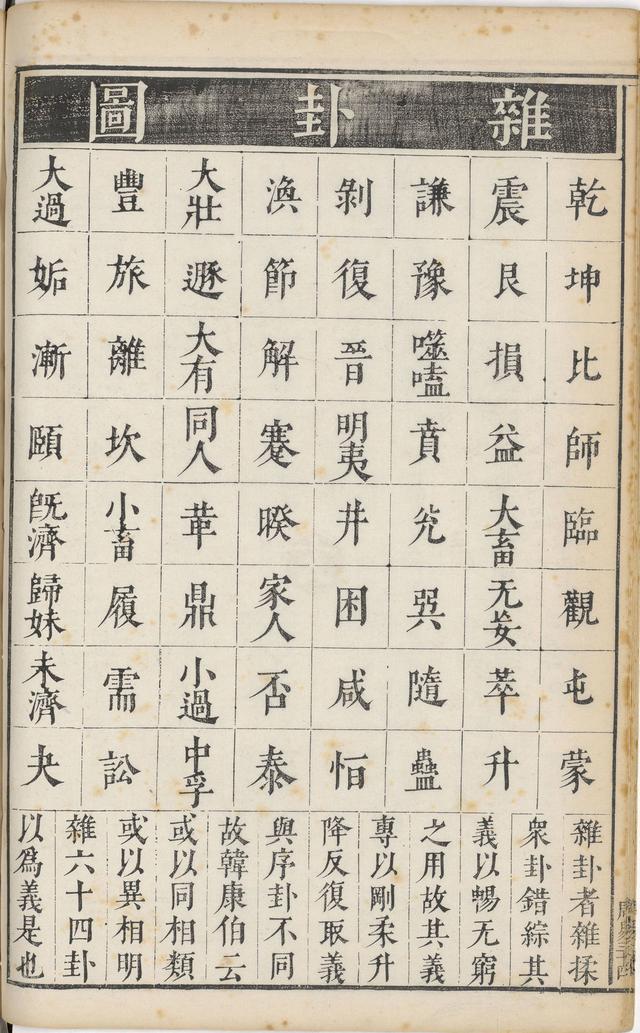 雜卦圖
乾 坤 比 師 臨 觀 屯 蒙
震 艮 損 益 大畜 无妄 萃 升
謙 豫 噬嗑 賁 兊 巽 隨 蠱
剝 復 晉 明夷 井 困 咸 恒
渙 節 解 蹇 睽 家人 否 泰
大壯 遯 大有 同人 革 鼎 小過 中孚
豐 旅 離 坎 小畜 履 需 訟
大過 姤 漸 頤 旣濟 歸妹 未濟 夬
雜卦者雜揉
衆卦錯綜其
義以暢无窮
之用故其義
專以剛柔升
降反復取義
與序卦不同
故韓康伯云
或以同相類
或以異相明
雜六十四卦
以爲義是也